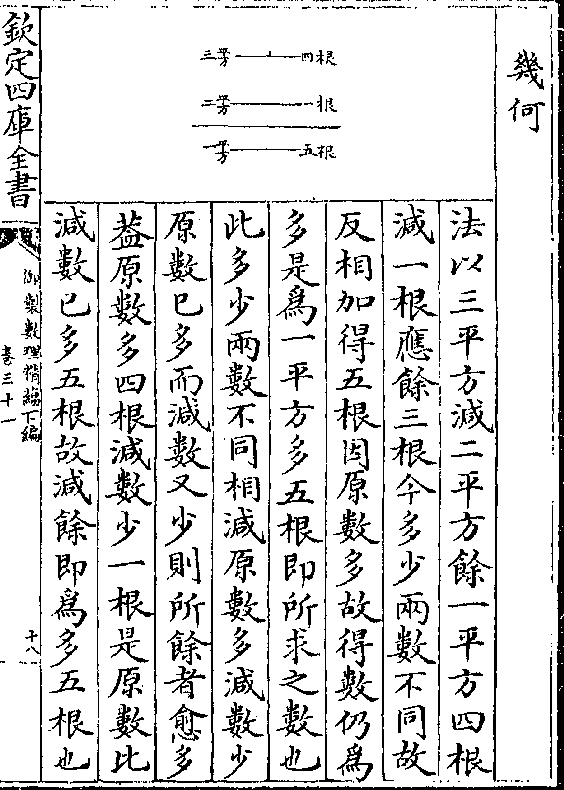 幾何
三平方⊥四根
二平方一一根
一平方五根
法以三平方減二平方餘一平方四根
減一根應餘三根今多少兩數不同故
反相加得五根因原數多故得數仍爲
多是爲一平方多五根即所求之數也
此多少兩數不同相減原數多減數少
原數已多而減數又少則所餘者愈多
葢原數多四根減數少一根是原數比
減數已多五根故減餘即爲多五根也
欽定四庫全書
御製數理精縕下編
卷三十一
十八